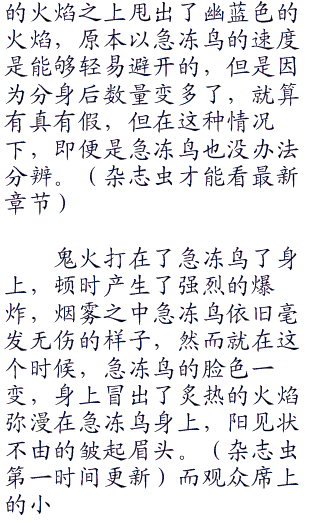 的火焰之上甩出了幽蓝色的
火焰，原本以急冻鸟的速度
是能够轻易避开的，但是因
为分身后数量变多了，就算
有真有假，但在这种情况
下，即便是急冻鸟也没办法
分辨。（杂志虫才能看最新
章节）
鬼火打在了急冻鸟了身
上，顿时产生了强烈的爆
炸，烟雾之中急冻鸟依旧毫
发无伤的样子，然而就在这
个时候，急冻鸟的脸色一
变，身上冒出了炙热的火焰
弥漫在急冻鸟身上，阳见状
不由的皱起眉头。（杂志虫
第一时间更新）而观众席上
的小